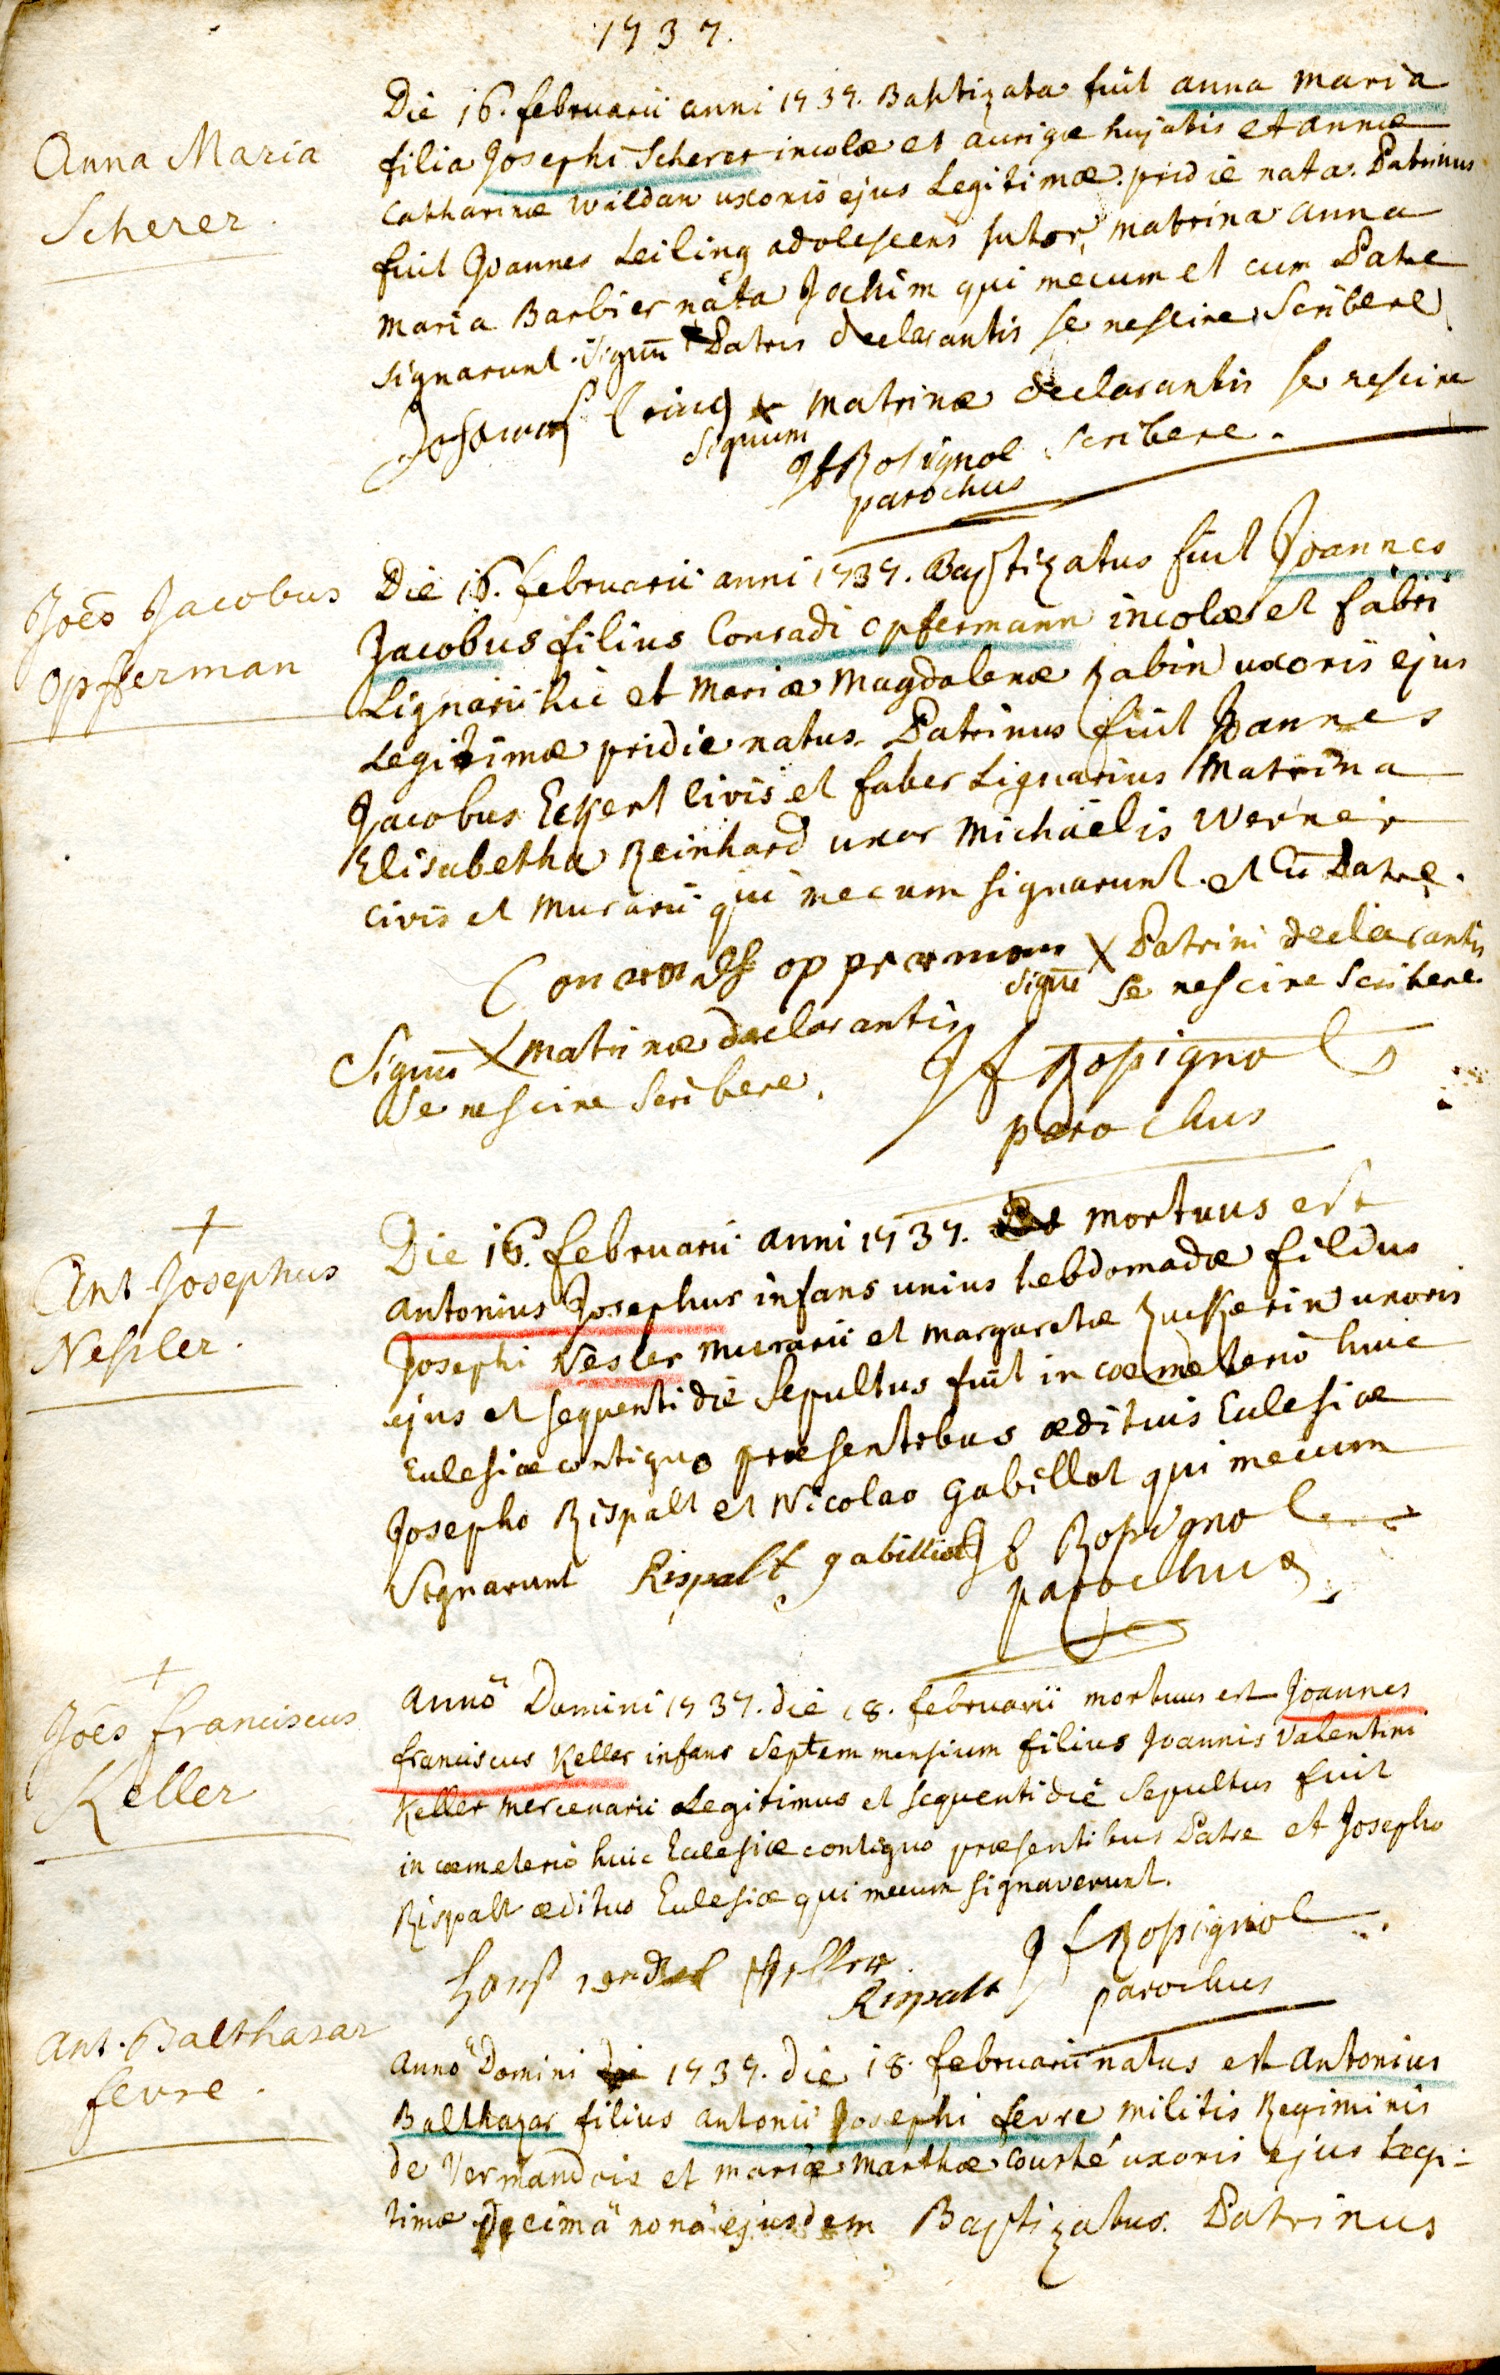 1737.
Anna Maria
Scherer.
Die 16. februarii anni 1737. Baptizata fuit anna maria
filia Josephi Scherer incolæ et aurigæ hujatis et annæ
Catharinæ Wildan uxoris ejus Legitimæ. pridie nata. Patrinus
fuit Joannes Leiling adolescens sutor, matrina anna
maria Barbier nata Jochim qui mecum et cum Patre
signarunt. signū Patris declarantis se nescire scribere
x matrinæ declarantis se nescire
signum
scribere.
JfRosignol
parochus
Joēs Jacobus
Opfferman
Die 16. februarii anni 1737. Baptizatus fuit Joannes
Jacobus filius Conradi opfermann incolæ et fabri
Lignarii hic et mariæ magdalenæ Zabin uxoris ejus
Legitimæ pridie natus. Patrinus fuit Joannes
Jacobus Eckert civis et faber Lignarius matrina
Elisabetha Reinhard uxor michäelis Werner
civis et murarii qui mecum signarunt. et cū Patre.
X Patrini declarantis
signū se nescire scribere.
Signū X matrinæ declarantis
se nescire scribere.
Jf Rosignol
parochus
+
Ant Josephus
Nessler.
Die 16. februarii anni 1737. mortuus est
antonius Josephus infans unius hebdomadæ filius
Josephi Nesler murarii et margaretæ Zuckerin uxoris
ejus et sequenti die sepultus fuit in coemeterio huic
Eclesiæ contiguo præsentebus ædituis Eclesiæ
Josepho Rispalt et Nicolao Gabillot qui mecum
signarunt Rispalt gabilliot Jf Rosignol
parochus
+
Joēs franciscus
Keller
annô Domini 1737. die 18. februarii mortuus est Joannes
franciscus Keller infans septem mensium filius Joannis Valentini
Keller mercenarii Legitimus et sequenti die sepultus fuit
in coemeterio huic Eclesiæ contiguo præsentibus Patre et Josepho
Rispalt ædituo Eclesiæ qui mecum signaverunt.
Jf Rosignol
Rispalt
parochus
Ant. Balthasar
fevre.
annô Domini 1737. die 18. februarii natus est antonius
Balthazar filius antonii Josephi fevre militis Regiminis
de Vermandois et mariæ marthæ Courté uxoris ejus Legi-
timæ Decimâ nonâ ejusdem Baptizatus. Patrinus